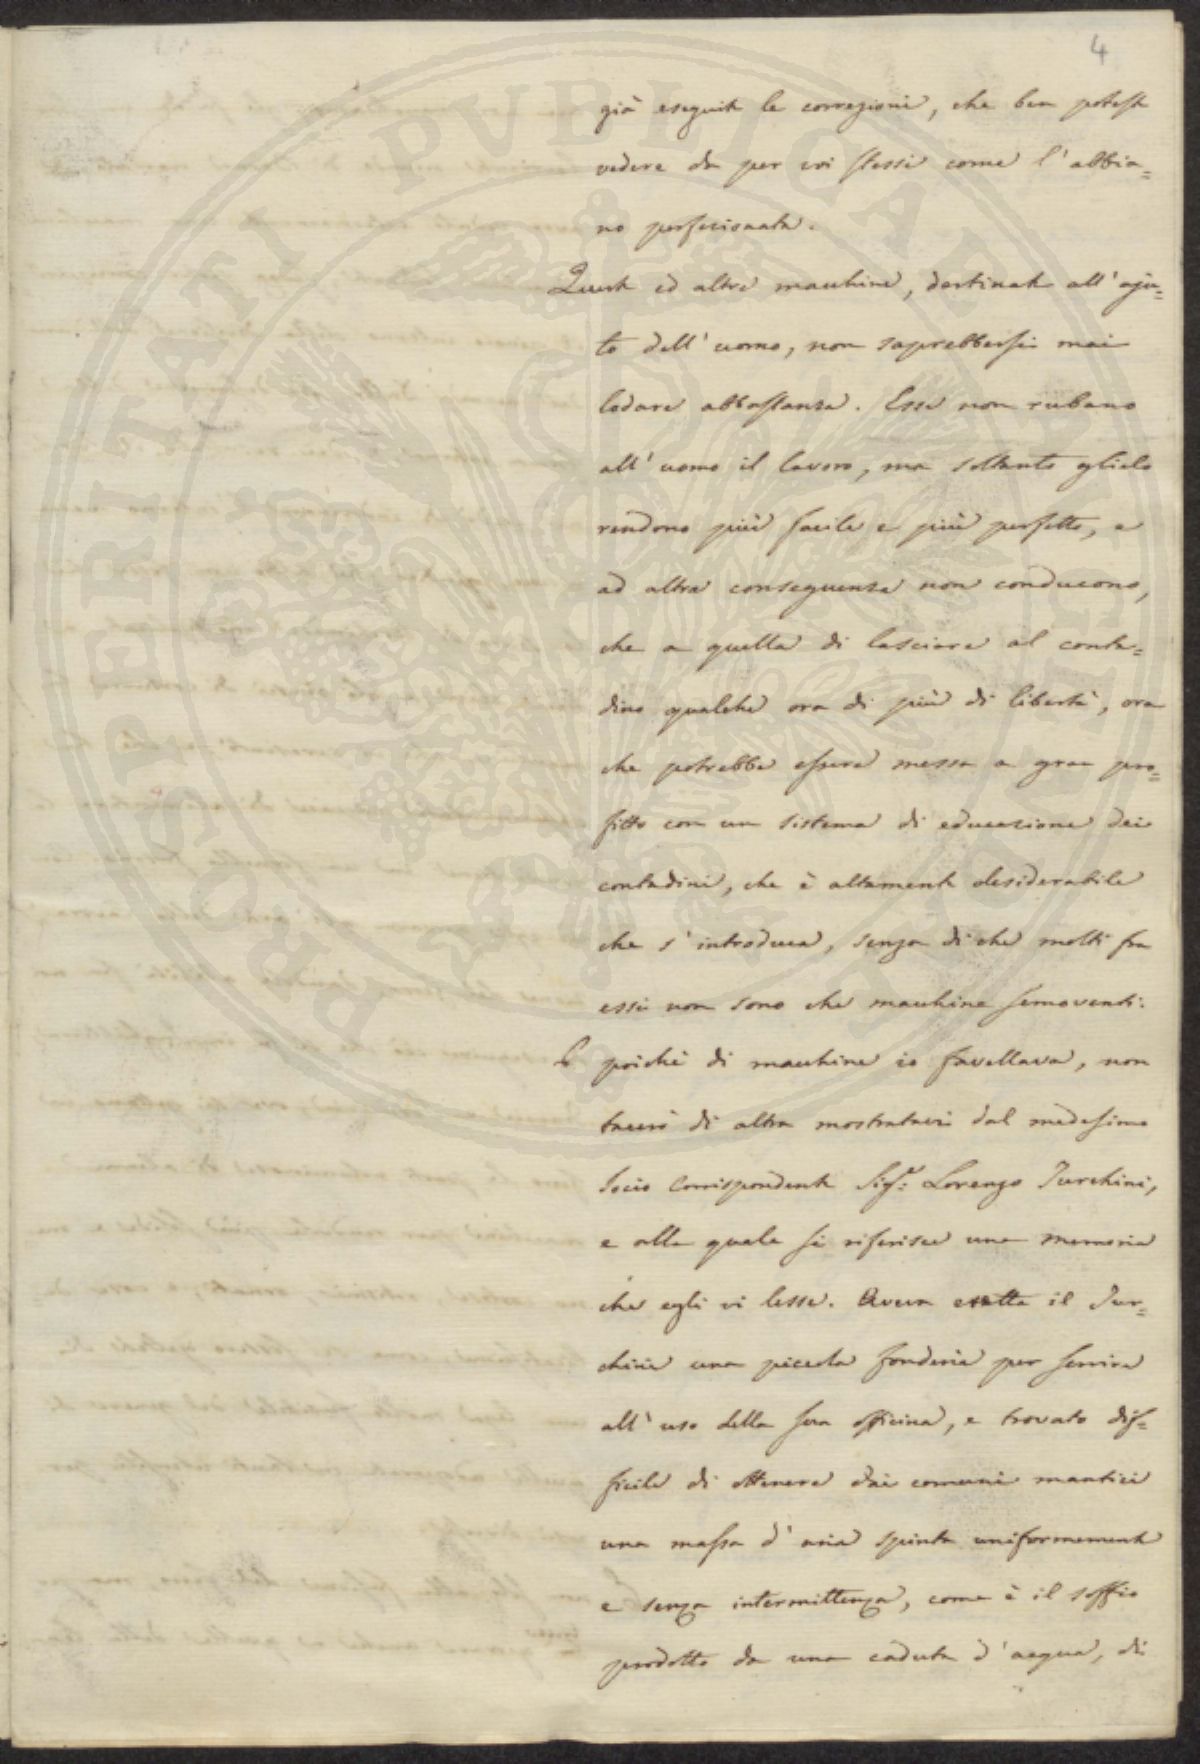 4
già eseguite le correzioni, che ben poteste
vedere da per voi stessi come l'abbia=
no perfezionata.
Queste ed altre macchine, destinate all'aju=
to dell'uomo, non saprebbersi mai
lodare abbastanza. Esse non rubano
all'uomo il lavoro, ma soltanto glielo
rendono più facile e più perfetto, e
ad altra conseguenza non conducono,
che a quella di lasciare al conta=
dino qualche ora di più di libertà, ora
che potrebbe essere messa a gran pro=
fitto con un sistema di educazione dei
contadini, che è altamente desiderabile
che s'introduca, senza di che molti fra
essi non sono che macchine semoventi.
E poichè di macchine io favellava, non
tacerò di altra mostrataci dal medesimo
Socio Corrispondente Sigr. Lorenzo Turchini,
e alla quale si riferisce una memoria
che egli vi lesse. Aveva eretta il Tur=
chini una piccola fonderia per servire
all'uso della sua officina, e trovato dif=
ficile di ottenere dai comuni mantici
una massa d'aria spinta uniformemente
e senza intermittenza, come è il soffio
prodotto da una caduta d'acqua, di
PROSPERITATI PVBLICAE AVGENDAE